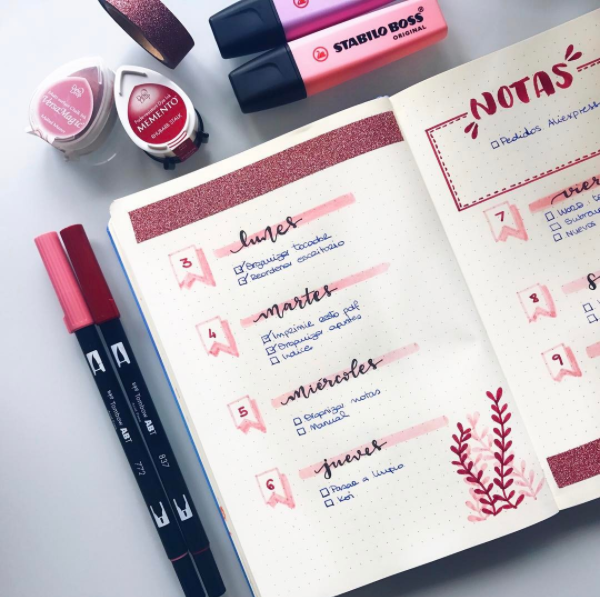 STABILO BOSS
ORIGINAL
MEMENTO
RHUBARB STALK
NOTAS
Pedidos Aliexpress
lunes
3
Organizar tocador
Reordenar escritorio
martes
4
Imprimir esto pdf
Organizar apuntes
Indice
miércoles
5
Organizar notas
Manual
jueves
6
Pasar a limpio
7
8
9
Tombow ABT
772
Tombow ABT
837